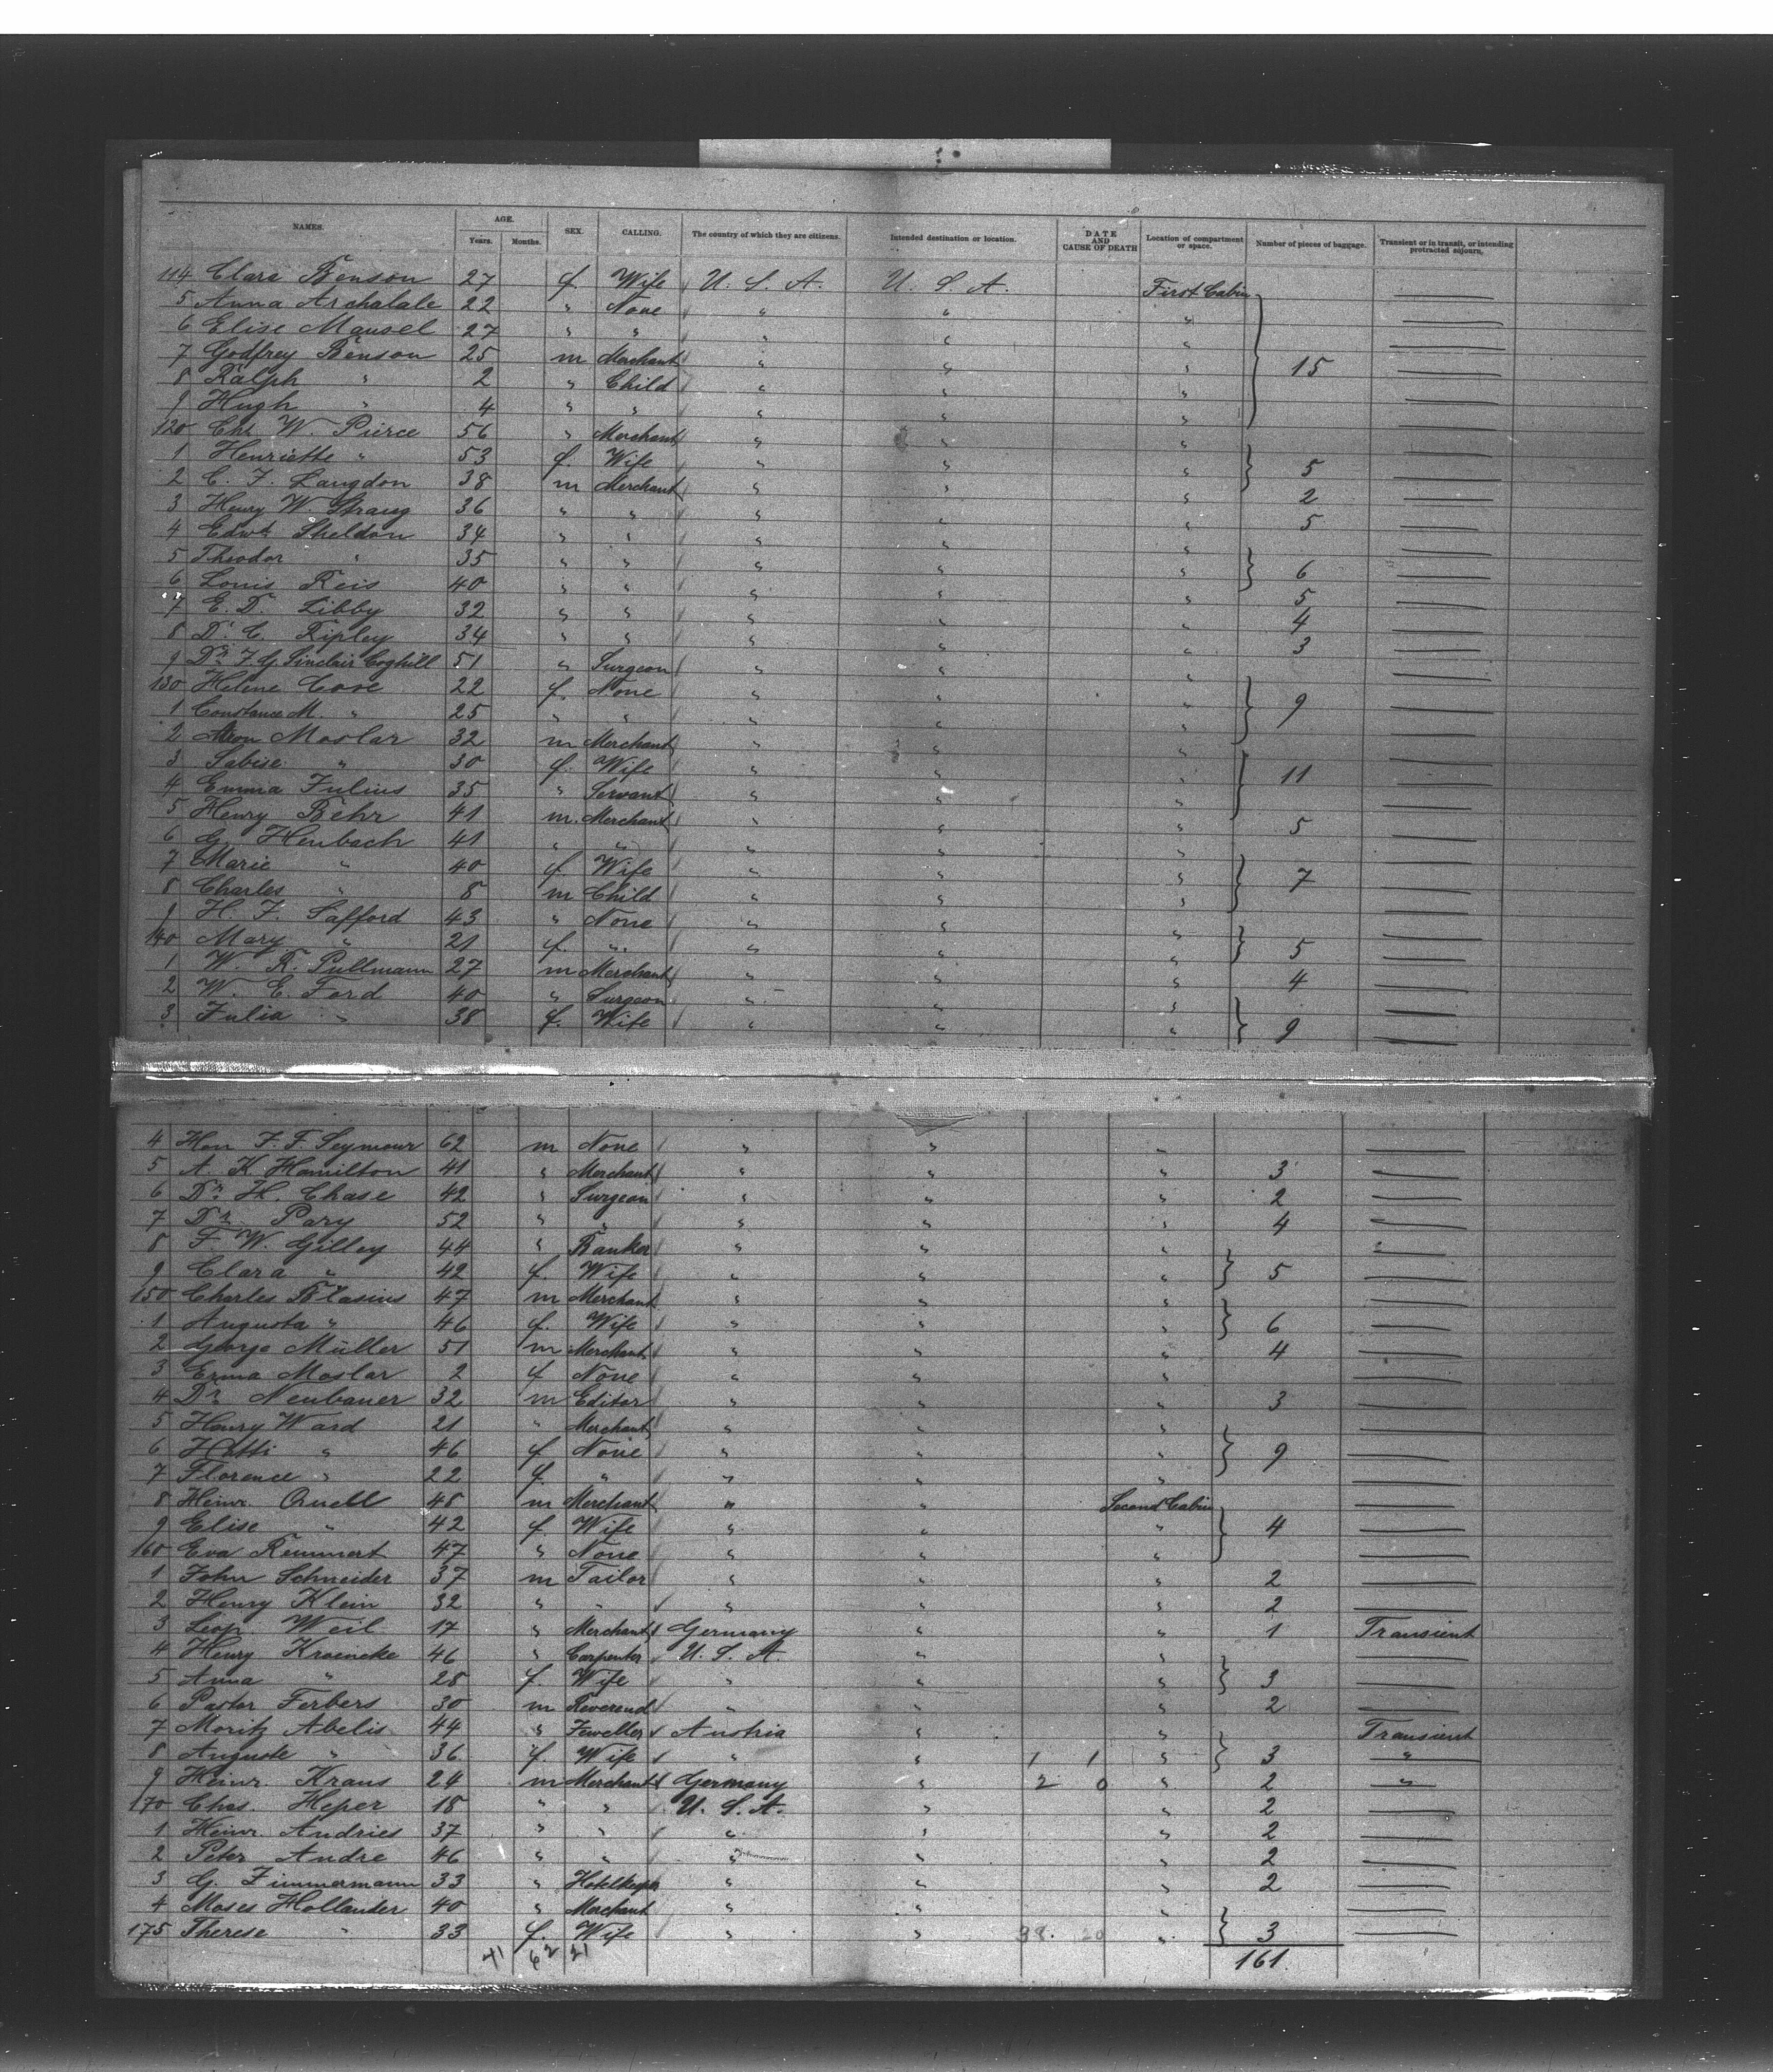 NAMES. AGE. Years. Months. SEX. CALLING. The country of which they are citizens. Intended destination or location. DATE AND CAUSE OF DEATH Location of compartment or space. Number of pieces of baggage. Transient or in transit, or intending protracted sojourn.
114 Clara Benson 27 f. Wife U. S. A. U. S. A. First Cabin
5 Anna Archalale 22 " None " " "
6 Elise Mansel 27 " " " " "
7 Godfrey Benson 25 m Merchant " " " 15
8 Ralph " 2 " Child " " "
9 Hugh " 4 " " " " "
120 Chs W. Pierce 56 " Merchant " " "
1 Henriette " 53 f. Wife " " " 5
2 C. F. Langdon 38 m Merchant " " " 2
3 Henry W. Strang 36 " " " " " 5
4 Edwd Sheldon 34 " " " " "
5 Theodor " 35 " " " " " 6
6 Louis Reis 40 " " " " " 5
7 E. D. Libby 32 " " " " " 4
8 D. C. Ripley 34 " " " " " 3
9 Dr. F. G. Sinclair Coghill 51 " Surgeon " " "
130 Helene Cove 22 f. None " " " 9
1 Constance M. " 25 " " " " "
2 Moslar 32 m Merchant " " "
3 Sabise " 30 f. Wife " " " 11
4 Emma Julius 35 " Servant " " "
5 Henry Behr 41 m. Merchant " " " 5
6 G. Henbach 41 " " " " "
7 Marie " 40 f. Wife " " " 7
8 Charles " 8 m Child " " "
9 H. F. Safford 43 " None " " "
140 Mary " 21 f. " " " " 5
1 W. R. Pullmann 27 m Merchant " " " 4
2 W. E. Ford 40 " Surgeon " " "
3 Julia " 38 f. Wife " " " 9
4 Hon F. F. Seymour 62 m None " " "
5 A. K. Hamilton 41 " Merchant " " " 3
6 Dr. H. Chase 42 " Surgeon " " " 2
7 Dr. Pary 52 " " " " " 4
8 F. W. Gilley 44 " Banker " " "
9 Clara " 42 f. Wife " " " 5
150 Charles Blasius 47 m Merchant " " "
1 Augusta " 46 f. Wife " " " 6
2 George Müller 51 m Merchant " " " 4
3 Erma Moslar 2 f None " " "
4 Dr. Neubauer 32 m Editor " " " 3
5 Henry Ward 21 " Merchant " " "
6 Hatti " 46 f None " " " 9
7 Florence " 22 f. " " " "
8 Heinr. Quell 48 m Merchant " " Second Cabin
9 Elise " 42 f Wife " " " 4
160 Eva Remmert 47 " None " " "
1 John Schneider 37 m Tailor " " " 2
2 Henry Klein 32 " " " " " 2
3 Leop. Weil 17 " Merchant Germany " " 1 Transient
4 Henry Kroencke 46 " Carpenter U. S. A. " "
5 Anna " 28 f. Wife " " " 3
6 Pastor Ferbers 30 m Reverend " " " 2
7 Moritz Abelis 44 " Jeweller Austria " " Transient
8 Auguste " 36 f. Wife " " 1 1 " 3 "
9 Heinr. Kraus 24 m Merchant Germany " 2 0 " 2 "
170 Chas. Heper 18 " " U. S. A. " " 2
1 Heinr. Andries 37 " " " " " 2
2 Peter Andre 46 " " " " " 2
3 G. Zimmermann 33 " Hotelkeeper " " " 2
4 Moses Hollander 40 " Merchant " " "
175 Therese " 33 f. Wife " " 38. 20 " 3
41 62 21 161.